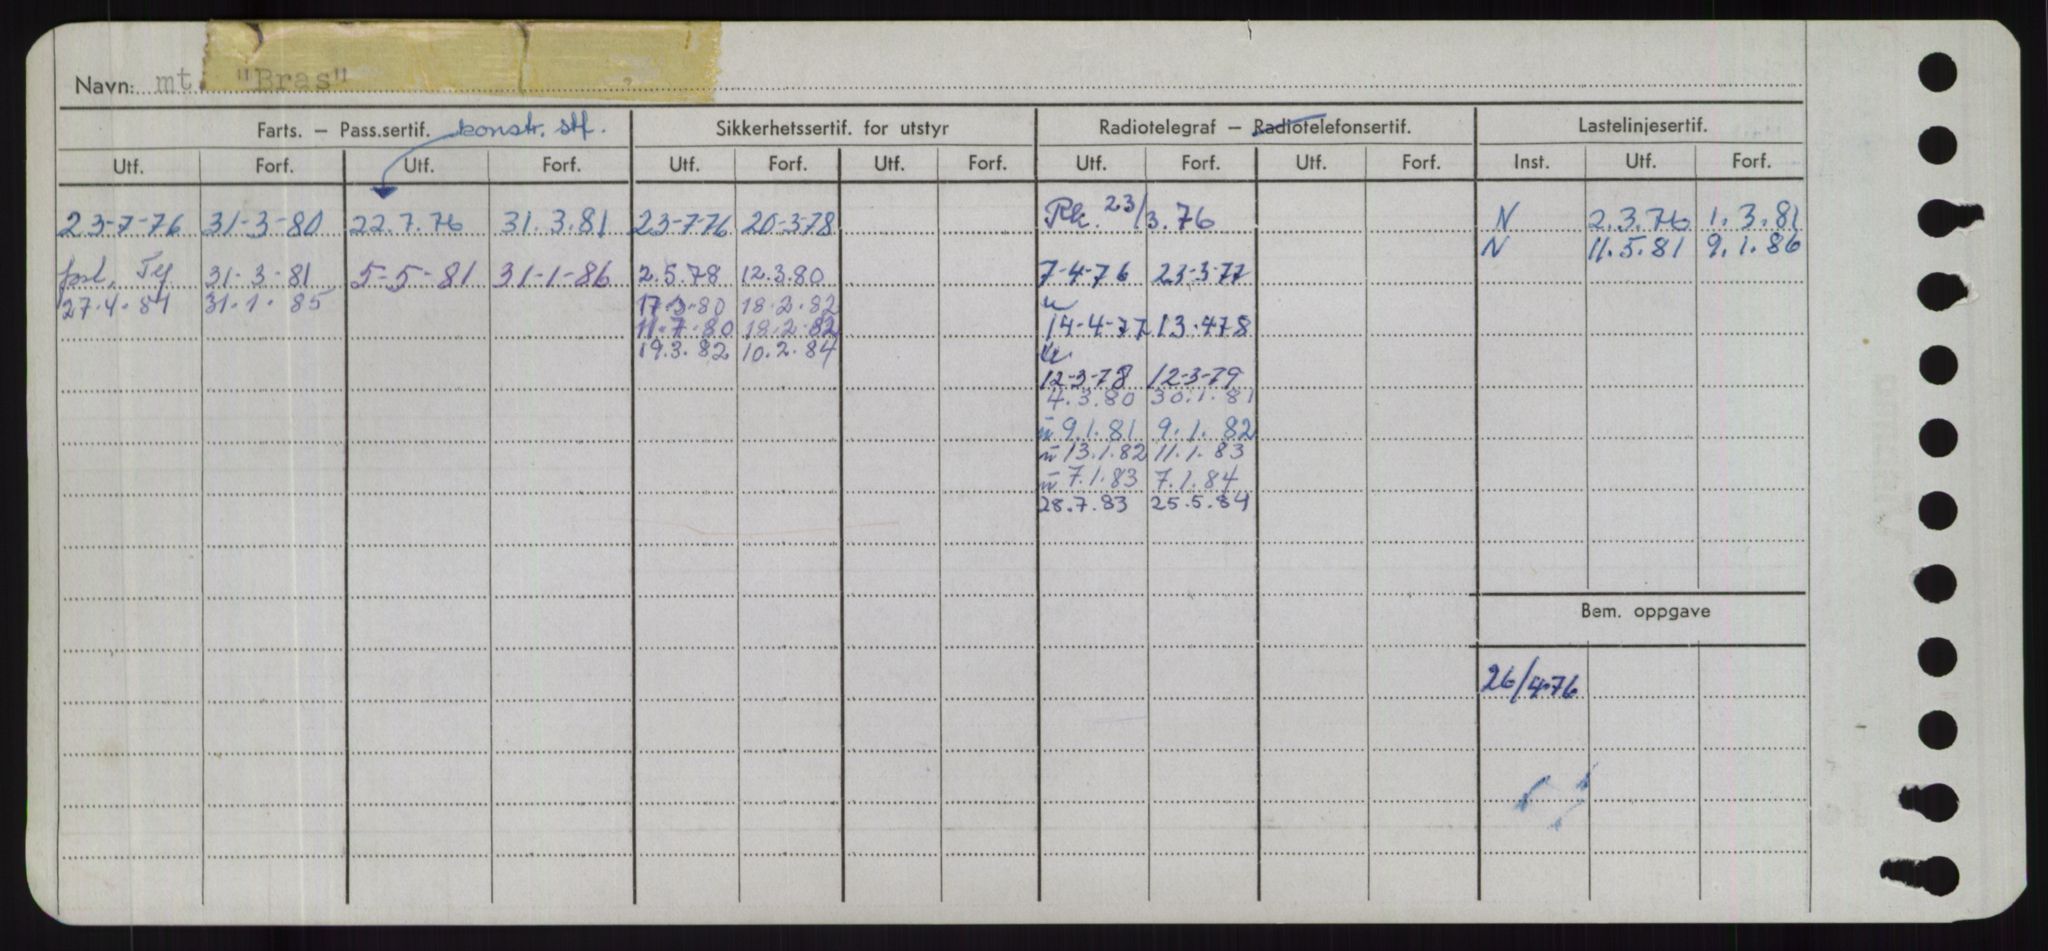 Navn: mt. "Bras"
Farts. – Pass.sertif. konstr. stf. Sikkerhetssertif. for utstyr Radiotelegraf – Radiotelefonsertif. Lastelinjesertif.
Utf. Forf. Utf. Forf. Utf. Forf. Utf. Forf. Utf. Forf. Utf. Forf. Inst. Utf. Forf.
23-7-76 31-3-80 22.7.76 31.3.81 23-7-76 20-3-78 Rk. 23/3.76 N 2.3.76 1.3.81
N 11.5.81 9.1.86
31-3-81 5-5-81 31-1-86 2.5.78 12.3.80 7-4-76 23-3-77
27.4.81 31.1.85 17.3.80 18.2.82
11.7.80 18.2.82 14-4-77 13.4.78
19.3.82 10.2.84
12-3-78 12-3-79
4.3.80 30.1.81
9.1.81 9.1.82
13.1.82 11.1.83
7.1.83 7.1.84
28.7.83 25.5.84
Bem. oppgave
26/4.76